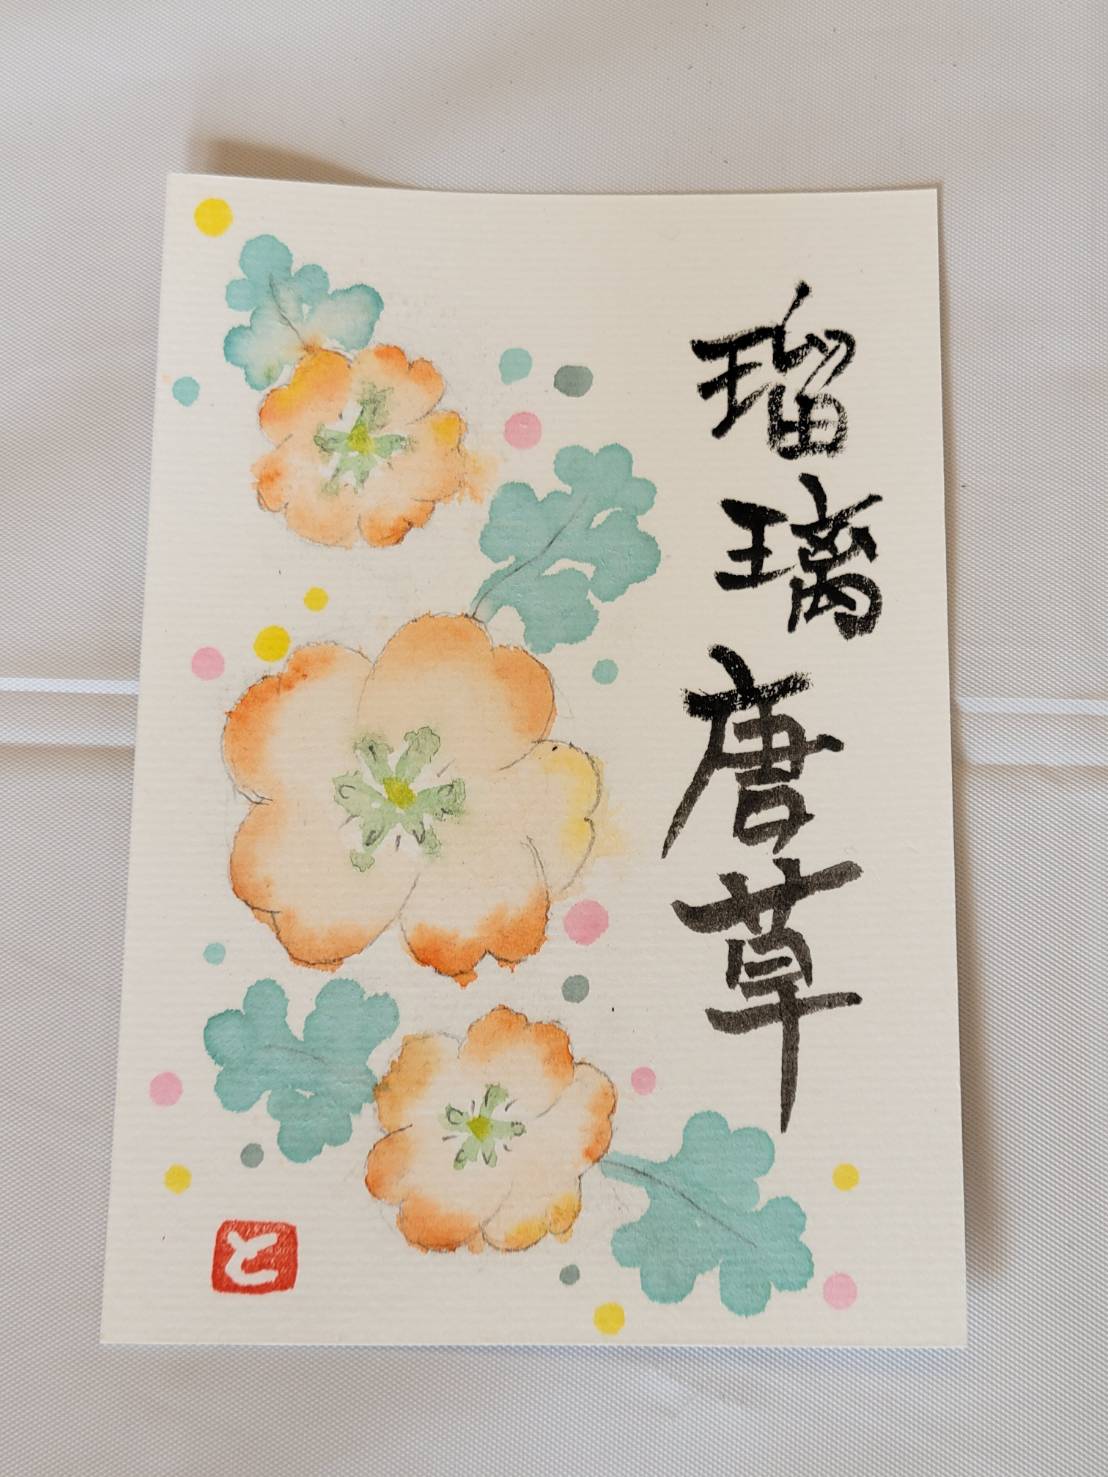 瑠璃唐草
と